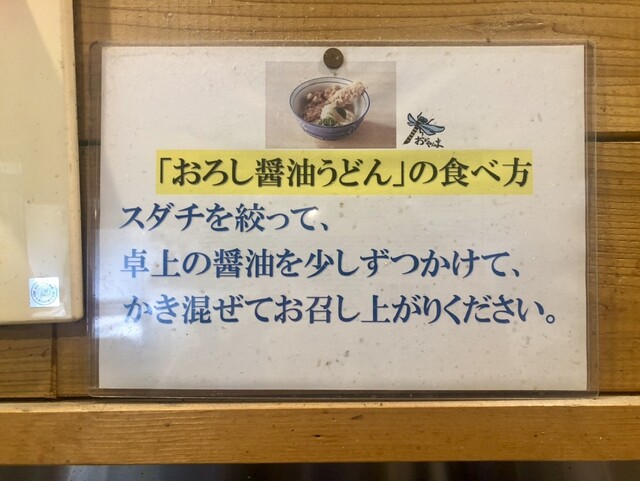 「おろし醤油うどん」の食べ方
スダチを絞って、
卓上の醤油を少しずつかけて、
かき混ぜてお召し上がりください。